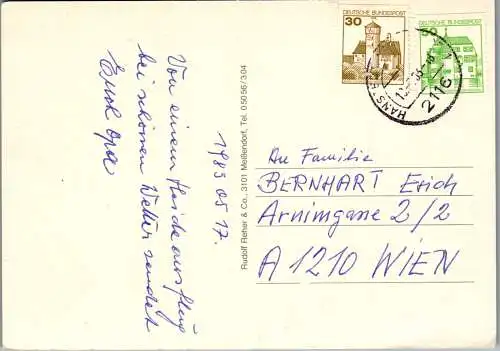 Von einem Heideausflug
bei schönem Wetter sendet
Euch Opa
1985 05 17.
Rudolf Reher & Co., 3101 Meißendorf, Tel. 0 50 56/3 04
30
DEUTSCHE BUNDESPOST
50
DEUTSCHE BUNDESPOST
2116
HANST
An Familie
BERNHART Erich
Arnimgasse 2/2
A 1210 WIEN